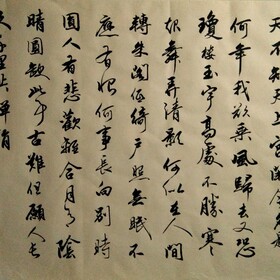 天不知天上宮闕今夕是
何年我欲乘風歸去又恐
瓊樓玉宇高處不勝寒
起舞弄清影何似在人間
轉朱閣低綺戶照無眠不
應有恨何事長向別時
圓人有悲歡離合月有陰
晴圓缺此事古難但願人長
久千里共嬋娟